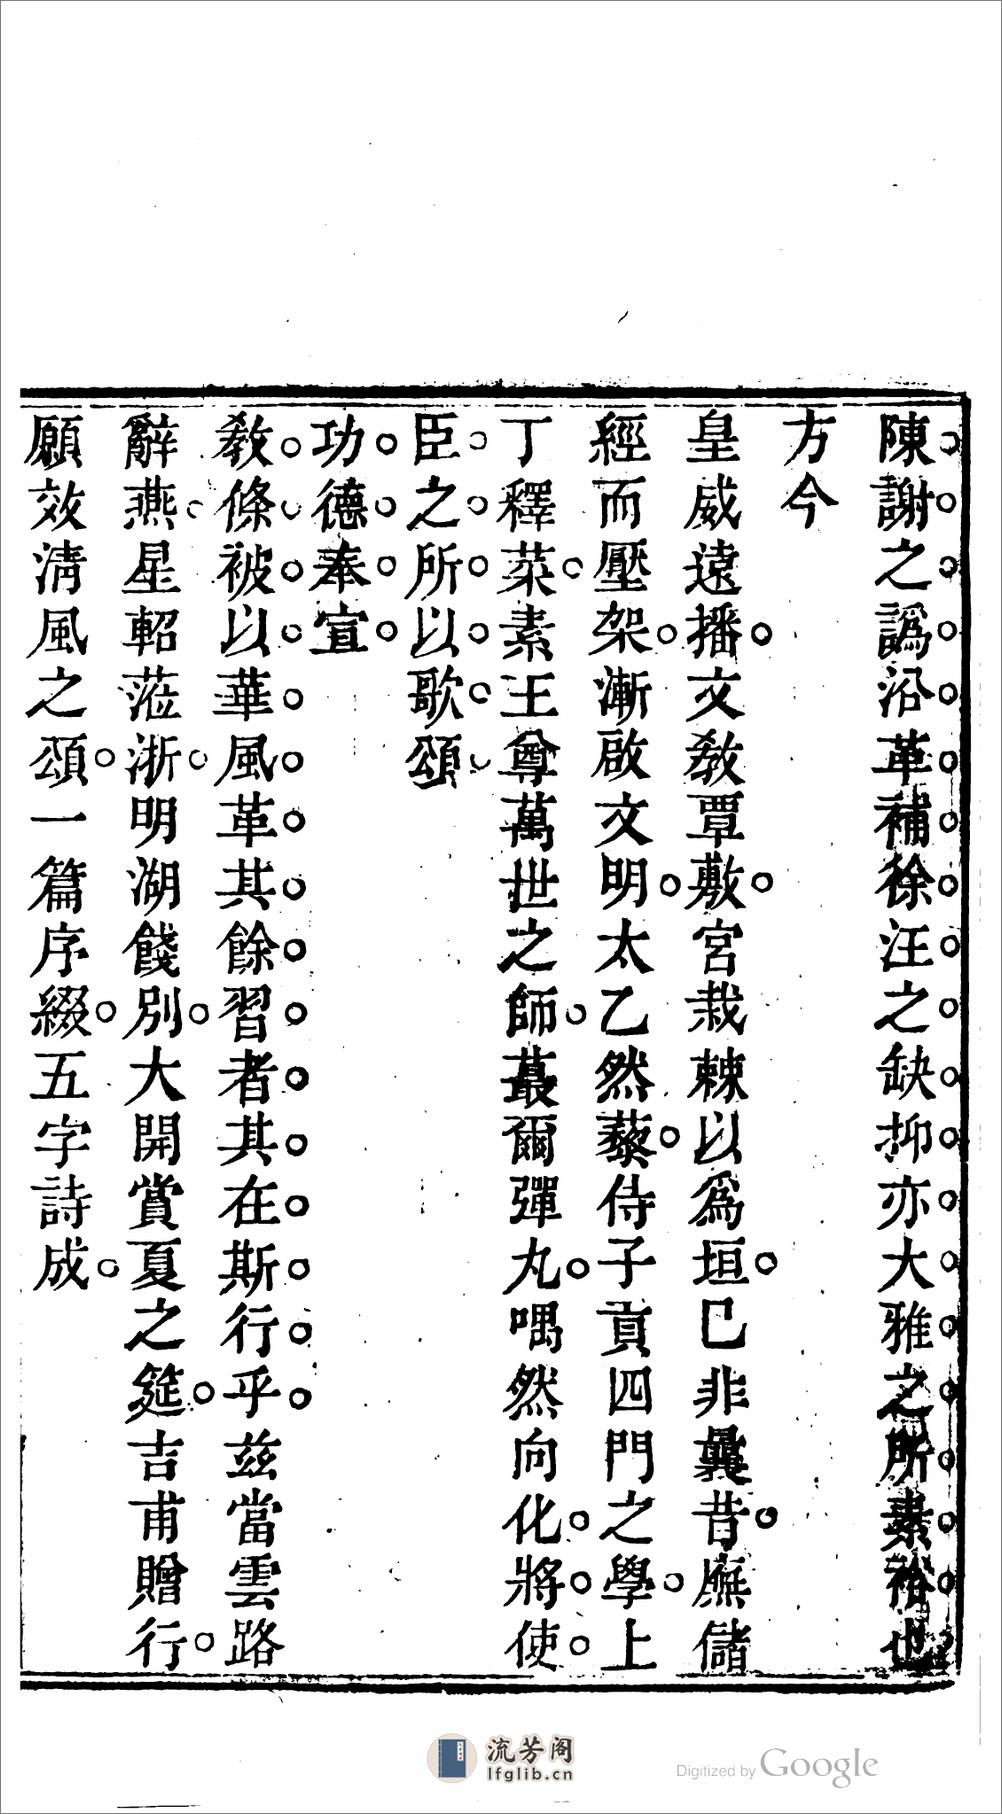 陳謝之譌沿革補徐汪之缺抑亦大雅之所素裕也
方今
皇威遠播文敎覃敷宮栽棘以爲垣已非曩昔廡儲
經而壓架漸啟文明太乙然藜侍子貢四門之學上
丁釋菜素王尊萬世之師蕞爾彈丸喁然向化將使
臣之所以歌頌
功德奉宣
敎條被以華風革其餘習者其在斯行乎茲當雲路
辭燕星軺蒞浙明湖餞別大開賞夏之筵吉甫贈行
願效清風之頌一篇序綴五字詩成
流芳阁
lfglib.cn
Digitized by Google